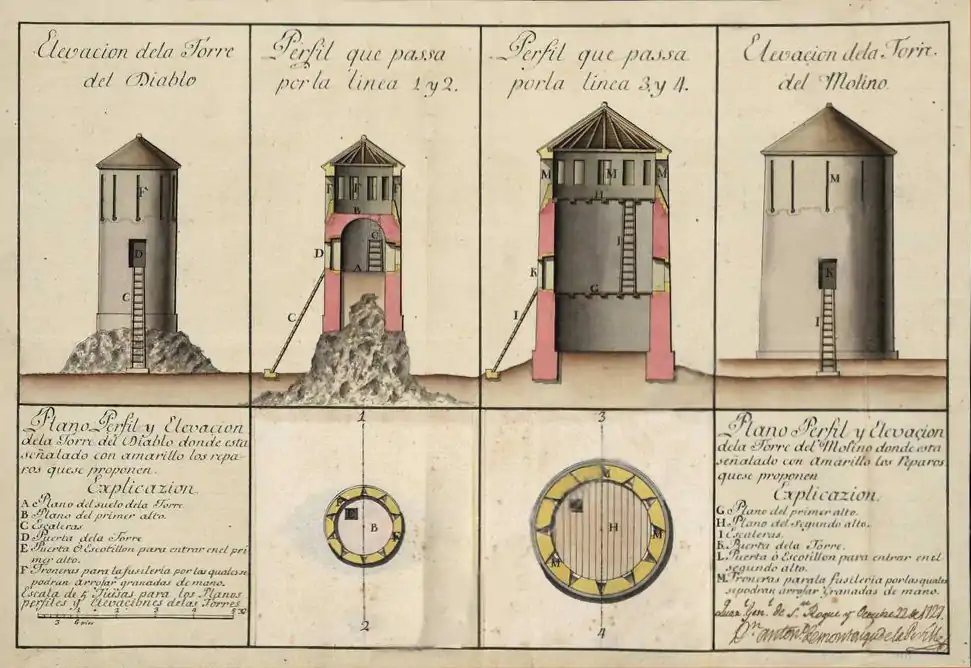 Elevacion dela Torre
del Diablo
Perfil que passa
por la linea 1 y 2.
Perfil que passa
por la linea 3 y 4.
Elevacion dela Torre
del Molino.
F
D
C
F
F
F
B
C
A
D
C
M
M
M
H
I
G
K
I
M
K
I
Plano Perfil y Elevacion
dela Torre del Diablo donde esta
señalado con amarillo los repa-
ros que se proponen.
Explicazion
A Plano del suelo dela Torre
B Plano del primer alto.
C Escaleras
D Puerta dela Torre
E Puerta ó Escotillon para entrar en el pri
mer alto.
F Troneras para la fusileria por las quales se
podran arrojar granadas de mano.
Escala de 5 Tuesas para los Planos
perfiles y elevaciones de las Torres
1
B
2
3
H
M
M
4
Plano Perfil y Elevaçion
dela Torre del Molino donde esta
señalado con amarillo los Reparos
que se proponen
Explicazion.
G Plano del primer alto.
H Plano del segundo alto.
I Escaleras.
K Puerta dela Torre.
L Puerta ó Escotillon para entrar en el
segundo alto.
M Troneras para la fusileria por las quales
se podran arrojar Granadas de mano.
de Sn. Roque y 22 de 1727.
Dn. Antonio de Montaigu de la Perille